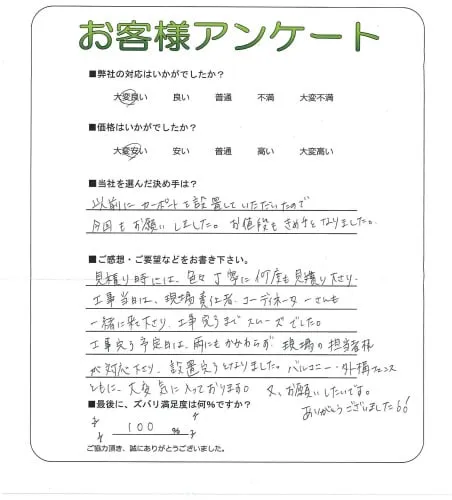 お客様アンケート
■弊社の対応はいかがでしたか？
大変良い 良い 普通 不満 大変不満
■価格はいかがでしたか？
大変安い 安い 普通 高い 大変高い
■当社を選んだ決め手は？
以前にカーポートを設置していただいたので
今回もお願いしました。お値段もきめ手となりました。
■ご感想・ご要望などをお書き下さい。
見積り時には、色々丁寧に何度も見積り下さり、
工事当日は、現場責任者、コーディネーターさんも
一緒に来て下さり、工事完了までスムーズでした。
工事完了予定日は、雨にもかかわらず、現場の担当者様
が対応下さり、設置完了となりました。バルコニー・外構フェンス
ともに、大変気に入っております。又、お願いしたいです。
ありがとうございました
■最後に、ズバリ満足度は何%ですか？
100 %
ご協力頂き、誠にありがとうございました。